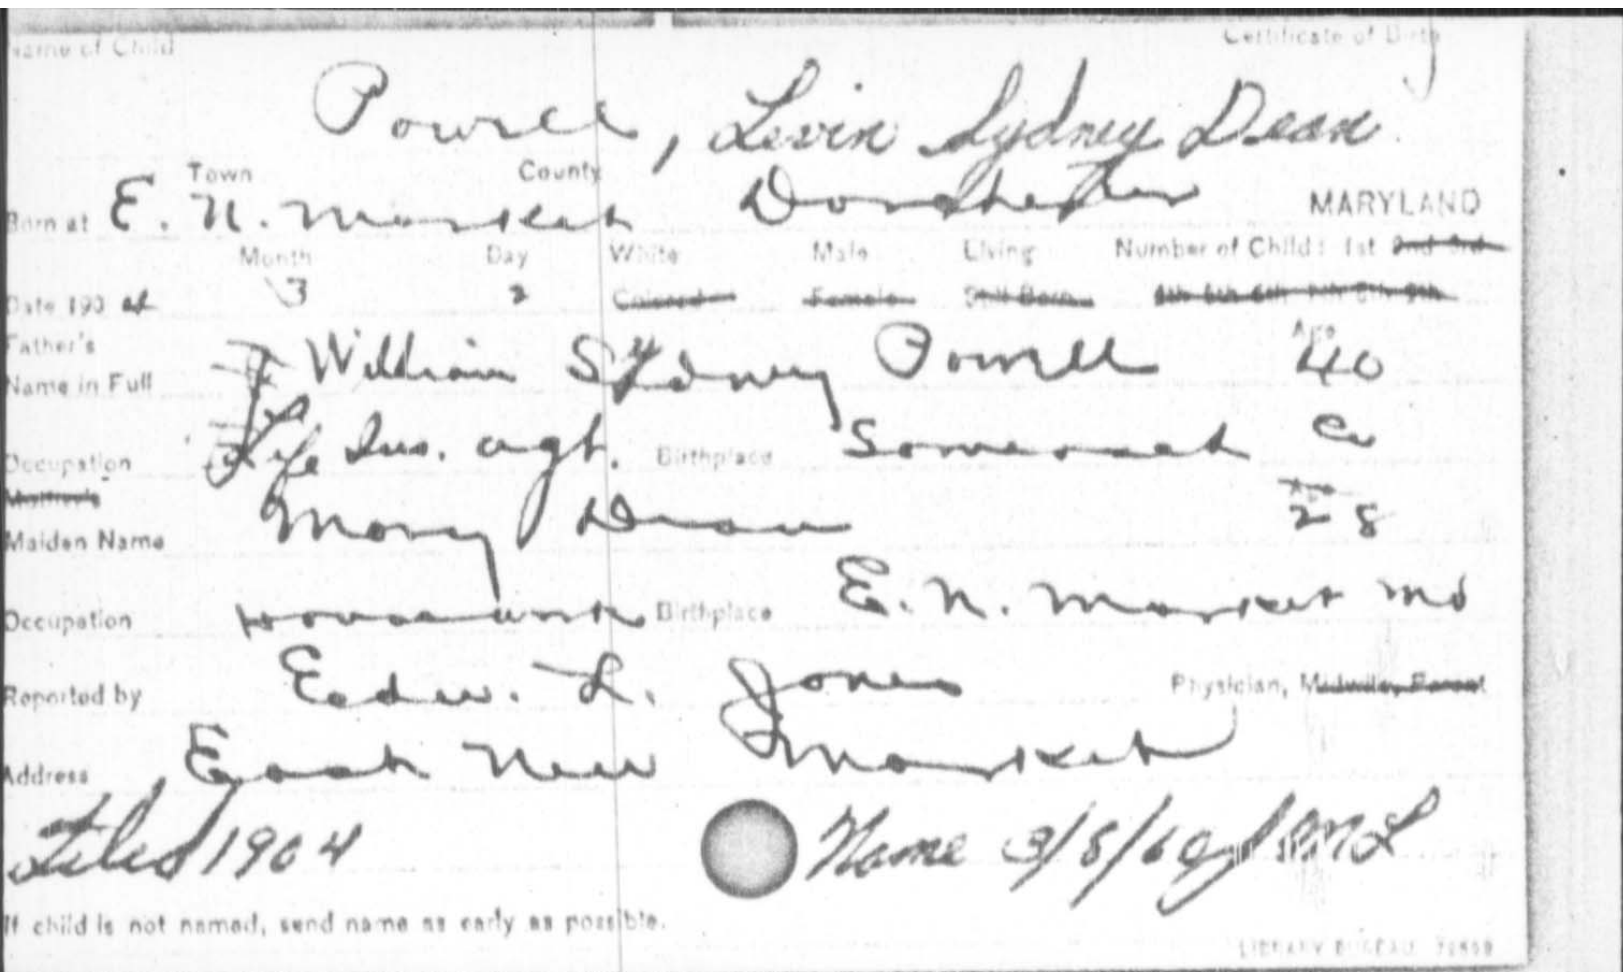 Name of Child Certificate of Birth
Powell, Levin Sydney Dean
Town County
Born at E. N. Market Dorchester MARYLAND
Month Day White Male Living Number of Child: 1st 2nd 3rd
Date 190 4 3 2 Colored Female Still Born 4th 5th 6th 7th 8th 9th
Father's Age
Name in Full William Sydney Powell 40
Occupation Life Ins. agt. Birthplace Somerset Co
Mother's Age
Maiden Name Mary Dean 28
Occupation Housework Birthplace E. N. Market Md
Reported by Edw. L. Jones Physician, Midwife, Parent
Address East New Market
Filed 1904 Name 3/8/60
If child is not named, send name as early as possible.
LIBRARY BUREAU